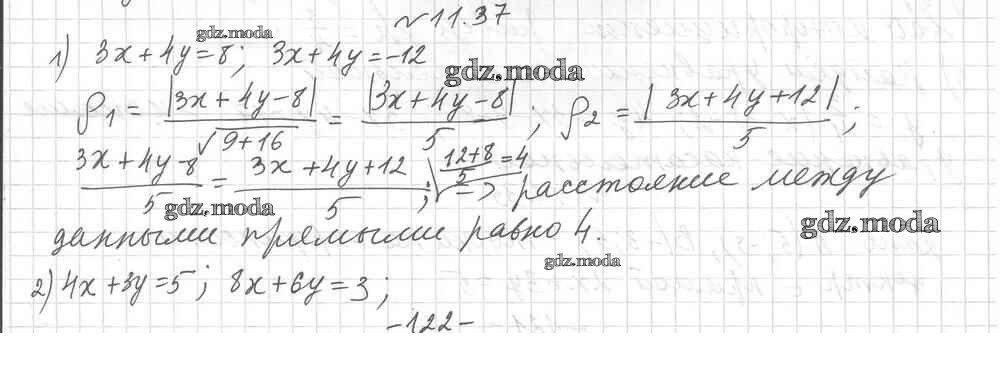 №11.37
gdz.moda
1) 3x+4y=8; 3x+4y=-12
gdz.moda
ρ1 = |3x+4y-8| / √9+16 = |3x+4y-8| / 5 ; ρ2 = |3x+4y+12| / 5 ;
3x+4y-8 / 5 = 3x+4y+12 / 5 ; 12+8 / 5 = 4 => расстояние между
gdz.moda
gdz.moda
данными прямыми равно 4.
gdz.moda
2) 4x+3y=5; 8x+6y=3;
-122-